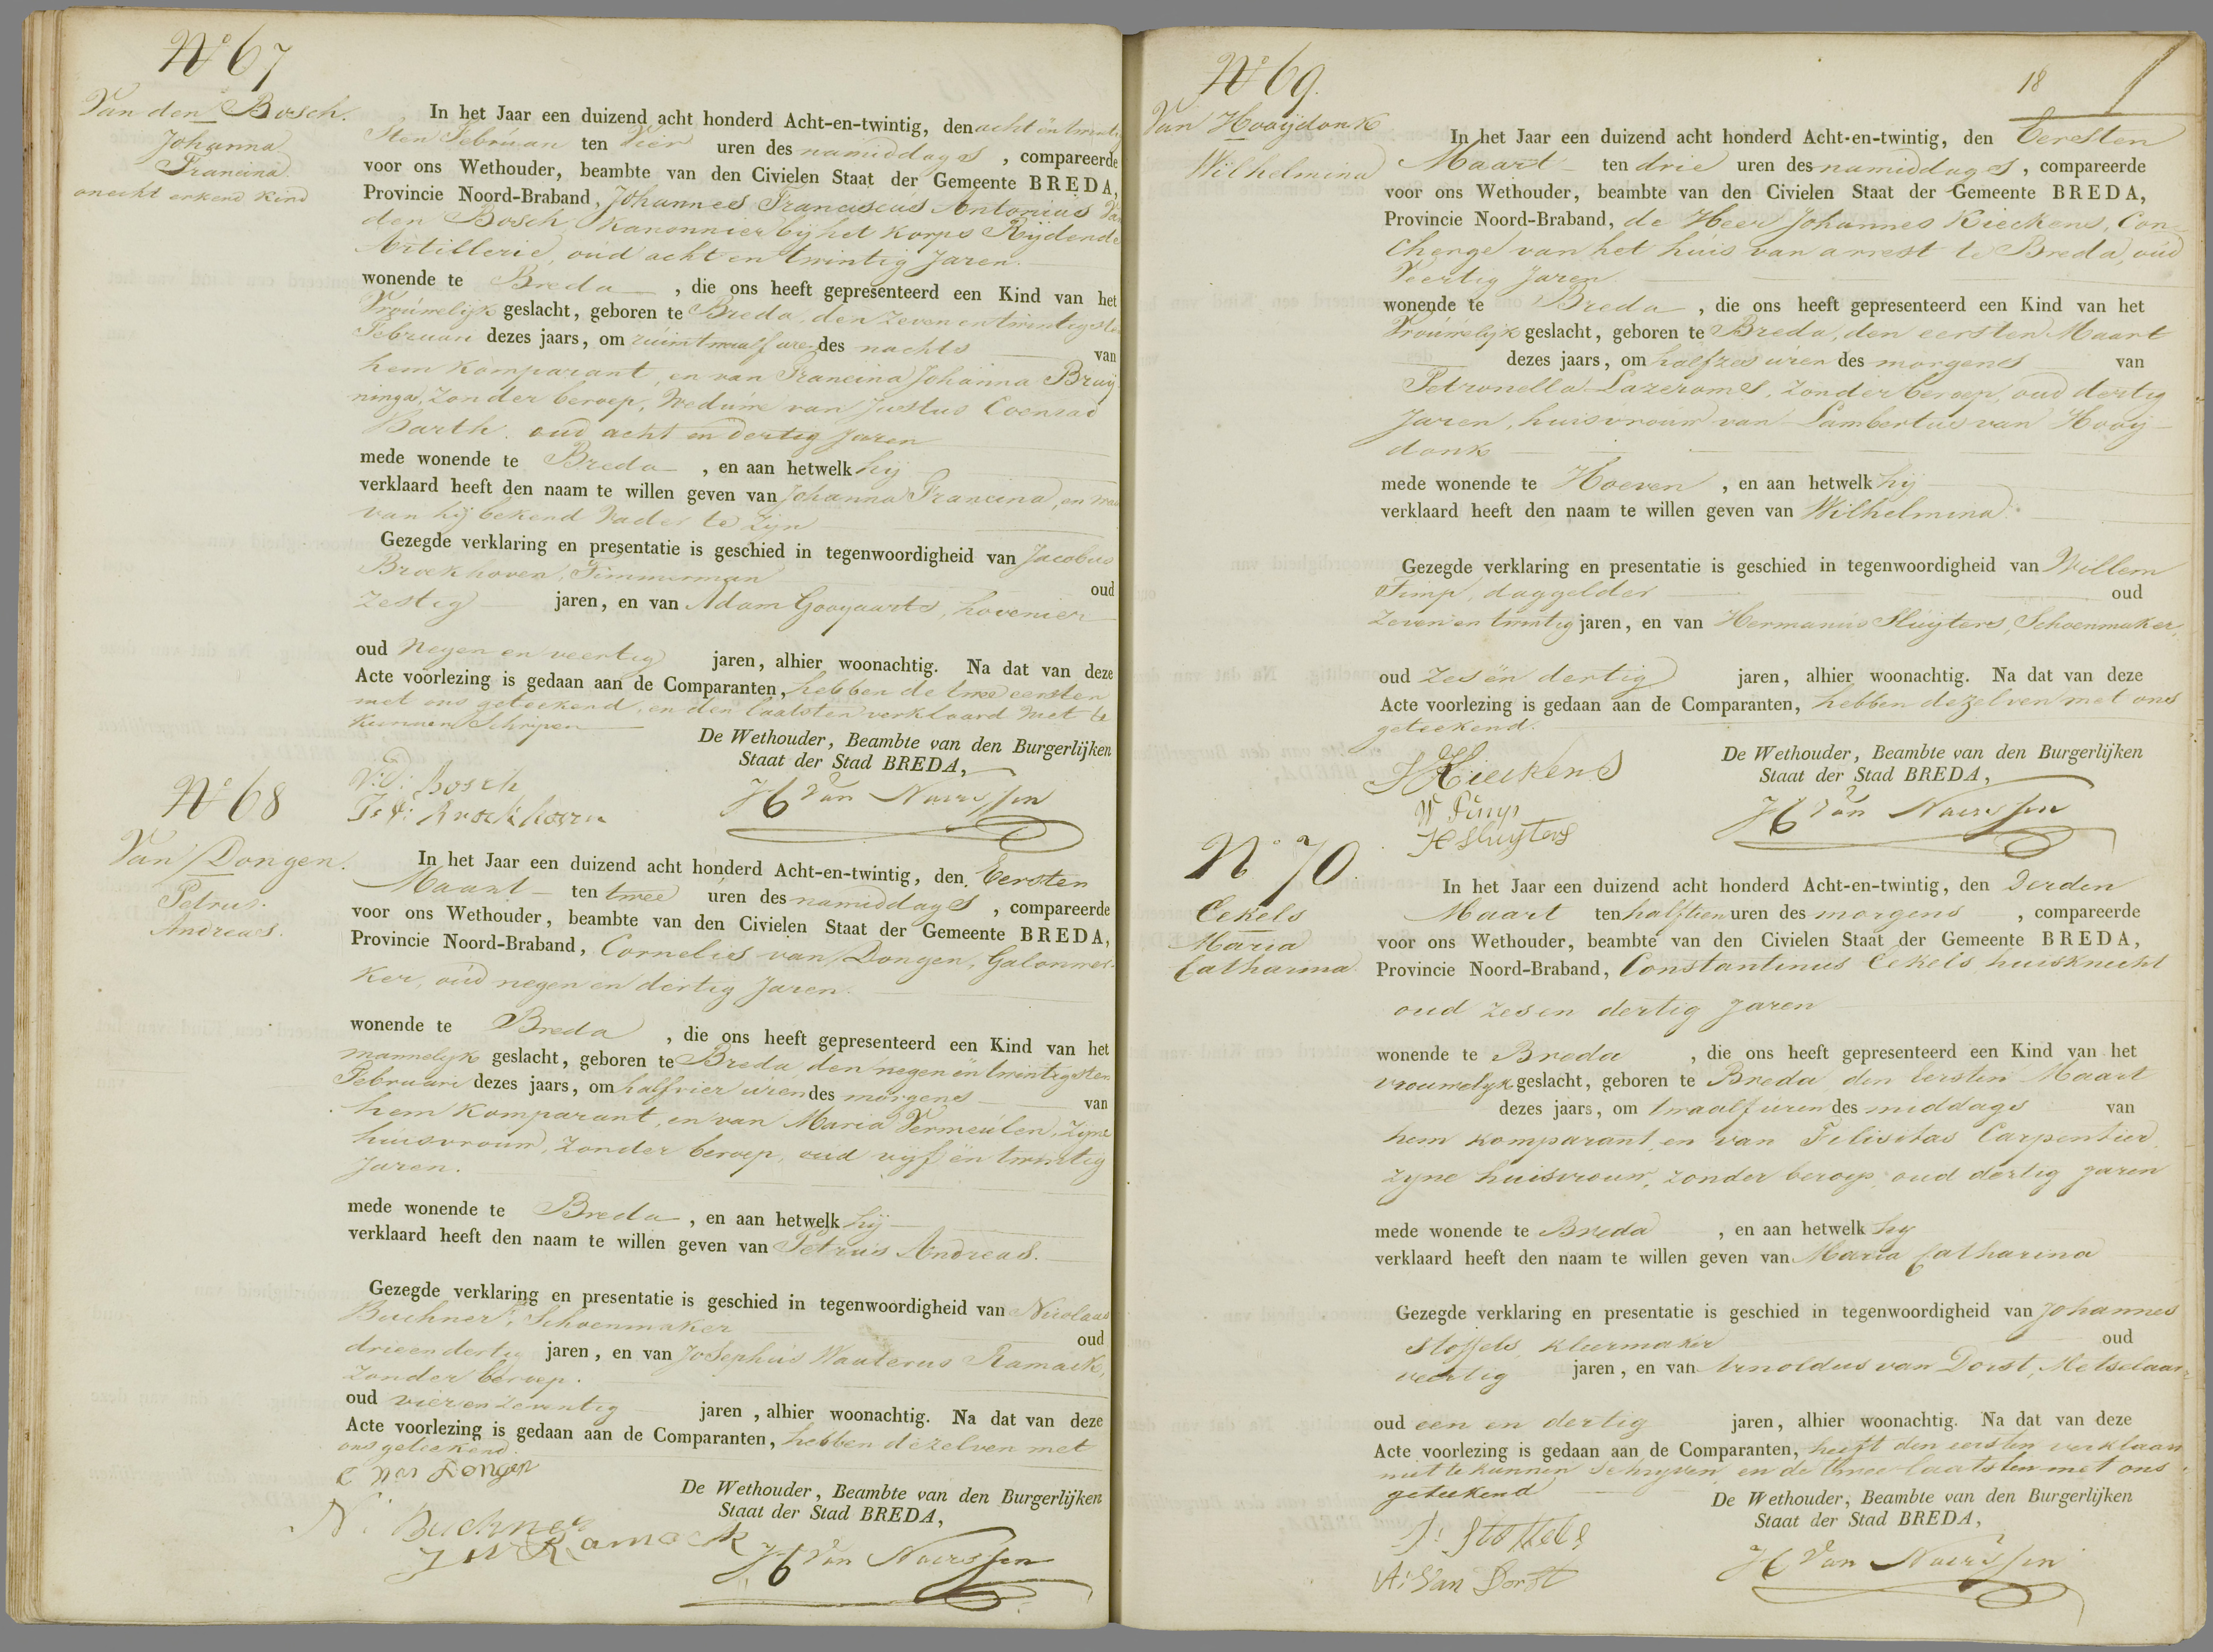 Nº 67
Van den Bosch.
Johanna
Francina.
onecht erkend kind
In het Jaar een duizend acht honderd Acht-en-twintig, den acht en twintig
sten Februari ten Vier uren des namiddags, compareerde
voor ons Wethouder, beambte van den Civielen Staat der Gemeente BREDA,
Provincie Noord-Braband, Johannes Franciscus Antonius Van
den Bosch, Kanonnier bij het korps Rijdende
Artillerie, oud acht en twintig Jaren.
wonende te Breda, die ons heeft gepresenteerd een Kind van het
Vrouwelijk geslacht, geboren te Breda, den zeven en twintigsten
Februari dezes jaars, om ruim twaalf uren des nachts van
hem Komparant, en van Francina Johanna Bruy
ninga, zonder beroep, Weduwe van Justus Coenraad
Barth. oud acht en dertig Jaren
mede wonende te Breda, en aan hetwelk hij
verklaard heeft den naam te willen geven van Johanna Francina, en waar
van hij bekend Vader te zijn
Gezegde verklaring en presentatie is geschied in tegenwoordigheid van Jacobus
Broekhoven, Timmerman oud
zestig jaren, en van Adam Googaarts, hovenier
oud Negen en veertig jaren, alhier woonachtig. Na dat van deze
Acte voorlezing is gedaan aan de Comparanten, hebben de twee eersten
met ons geteekend, en den laatsten verklaard niet te
kunnen Schrijven
De Wethouder, Beambte van den Burgerlijken
Staat der Stad BREDA,
V:D: Bosch
Broekhoven
H Van Naerssen
Nº 68
Van Dongen.
Petrus.
Andreas.
In het Jaar een duizend acht honderd Acht-en-twintig, den Eersten
Maart ten twee uren des namiddags, compareerde
voor ons Wethouder, beambte van den Civielen Staat der Gemeente BREDA,
Provincie Noord-Braband, Cornelis van Dongen, Galonwer-
ker, oud negen en dertig Jaren.
wonende te Breda, die ons heeft gepresenteerd een Kind van het
mannelyk geslacht, geboren te Breda, den negen en twintigsten
Februari dezes jaars, om half vier uren des morgens van
hem Komparant, en van Maria Vermeulen, zijne
huisvrouw, zonder beroep, oud vyf en twintig
Jaren.
mede wonende te Breda, en aan hetwelk hij
verklaard heeft den naam te willen geven van Petrus Andreas.
Gezegde verklaring en presentatie is geschied in tegenwoordigheid van Nicolaas
Buchner, Schoenmaker oud
drie en dertig jaren, en van Josephus Wauterus Ramaek,
zonder beroep.
oud vier en zeventig jaren, alhier woonachtig. Na dat van deze
Acte voorlezing is gedaan aan de Comparanten, hebben dezelven met
ons geteekend.
C van Dongen
N: Buchner
J W Ramaek
De Wethouder, Beambte van den Burgerlijken
Staat der Stad BREDA,
H Van Naerssen
18
Nº 69.
Van Hooijdonk
Wilhelmina
In het Jaar een duizend acht honderd Acht-en-twintig, den Eersten
Maart ten drie uren des namiddags, compareerde
voor ons Wethouder, beambte van den Civielen Staat der Gemeente BREDA,
Provincie Noord-Braband, de Heer Johannes Kieckens, Con-
cherge van het huis van arrest te Breda, oud
Veertig Jaren
wonende te Breda, die ons heeft gepresenteerd een Kind van het
Vrouwelijk geslacht, geboren te Breda, den eersten Maart
dezes jaars, om half zes uren des morgens van
Petronella Lazeroms, zonder beroep, oud dertig
Jaren, huisvrouw van Lambertus van Hooij-
donk
mede wonende te Hoeven, en aan hetwelk hij
verklaard heeft den naam te willen geven van Wilhelmina.
Gezegde verklaring en presentatie is geschied in tegenwoordigheid van Willem
Timp, daggelder oud
zeven en twintig jaren, en van Hermanus Sluyters, Schoenmaker,
oud zes en dertig jaren, alhier woonachtig. Na dat van deze
Acte voorlezing is gedaan aan de Comparanten, hebben dezelven met ons
geteekend.
J Kieckens
W Timp
H Sluyters
De Wethouder, Beambte van den Burgerlijken
Staat der Stad BREDA,
H Van Naerssen
Nº 70.
Cekels
Maria
Catharina
In het Jaar een duizend acht honderd Acht-en-twintig, den Derden
Maart ten half tien uren des morgens, compareerde
voor ons Wethouder, beambte van den Civielen Staat der Gemeente BREDA,
Provincie Noord-Braband, Constantinus Cekels, huisknecht
oud zes en dertig Jaren
wonende te Breda, die ons heeft gepresenteerd een Kind van het
vrouwelyk geslacht, geboren te Breda den Eersten Maart
dezes jaars, om twaalf uren des middags van
hem komparant, en van Felisitas Carpentier
zyne huisvrouw, zonder beroep, oud dertig jaren
mede wonende te Breda, en aan hetwelk hy
verklaard heeft den naam te willen geven van Maria Catharina
Gezegde verklaring en presentatie is geschied in tegenwoordigheid van Johannes
Stoffels, kleermaker oud
veertig jaren, en van Arnoldus van Dorst, Metselaar
oud een en dertig jaren, alhier woonachtig. Na dat van deze
Acte voorlezing is gedaan aan de Comparanten, heeft den eersten verklaard
niet te kunnen schryven en de twee laatsten met ons
geteekend
J: Stoffels
A: Van Dorst
De Wethouder, Beambte van den Burgerlijken
Staat der Stad BREDA,
H Van Naerssen